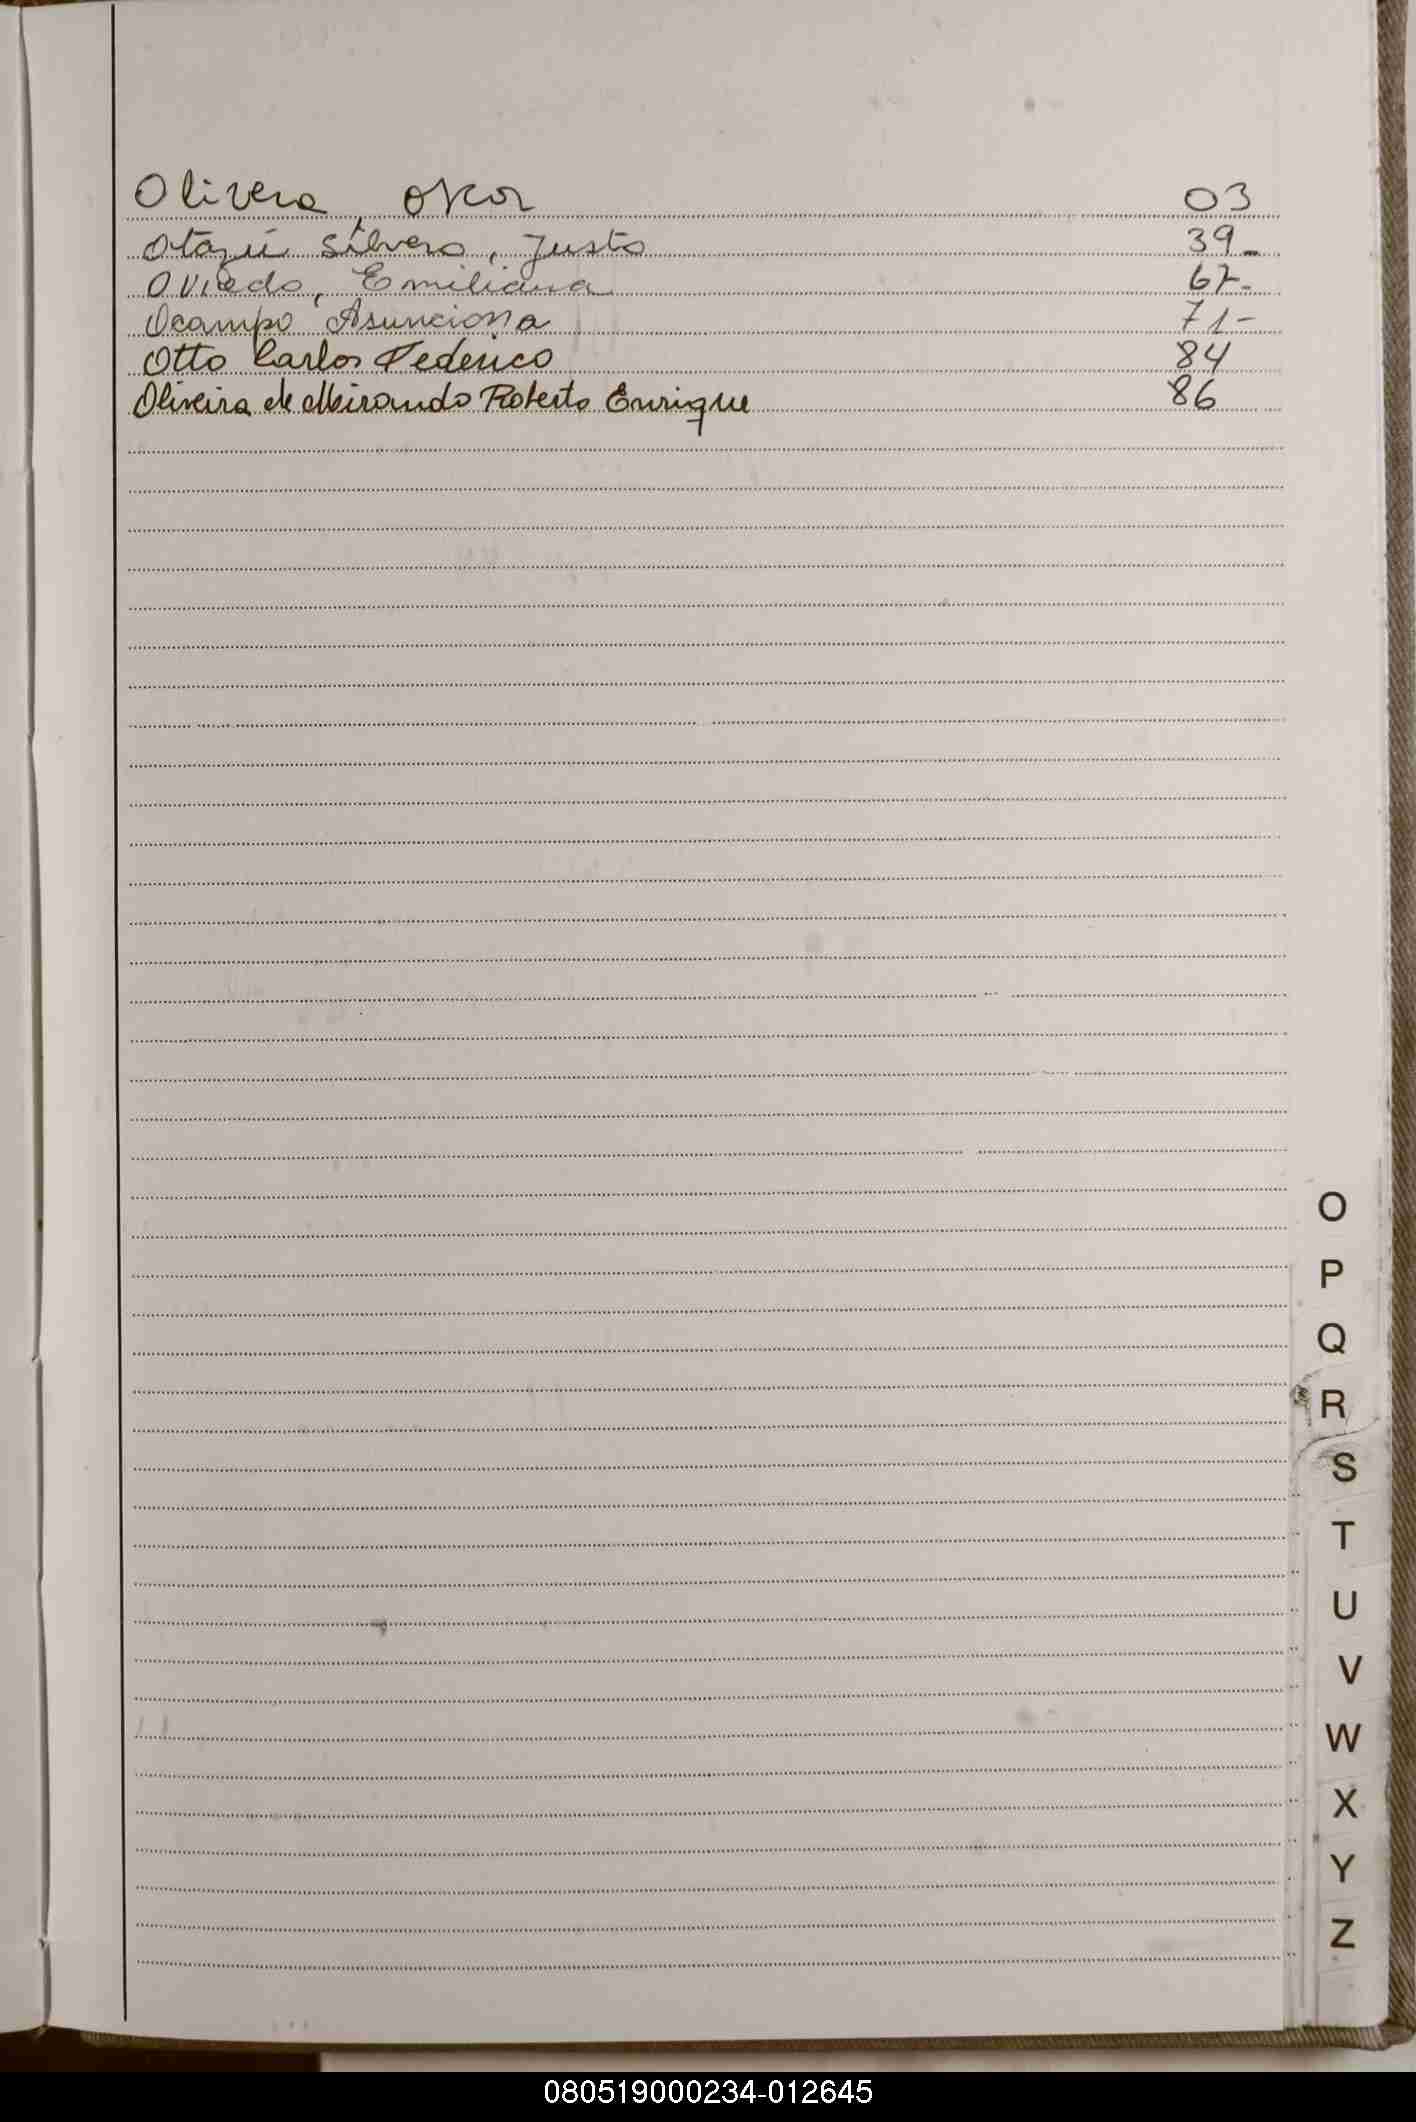 Olivera, Oscar 03
Otazú Silvero, Justo 39_
Oviedo, Emiliana 67-
Ocampo Asunciona 71-
Otto Carlos Federico 84
Oliveira de Mirando Roberto Enrique 86
O
P
Q
R
S
T
U
V
W
X
Y
Z
080519000234-012645